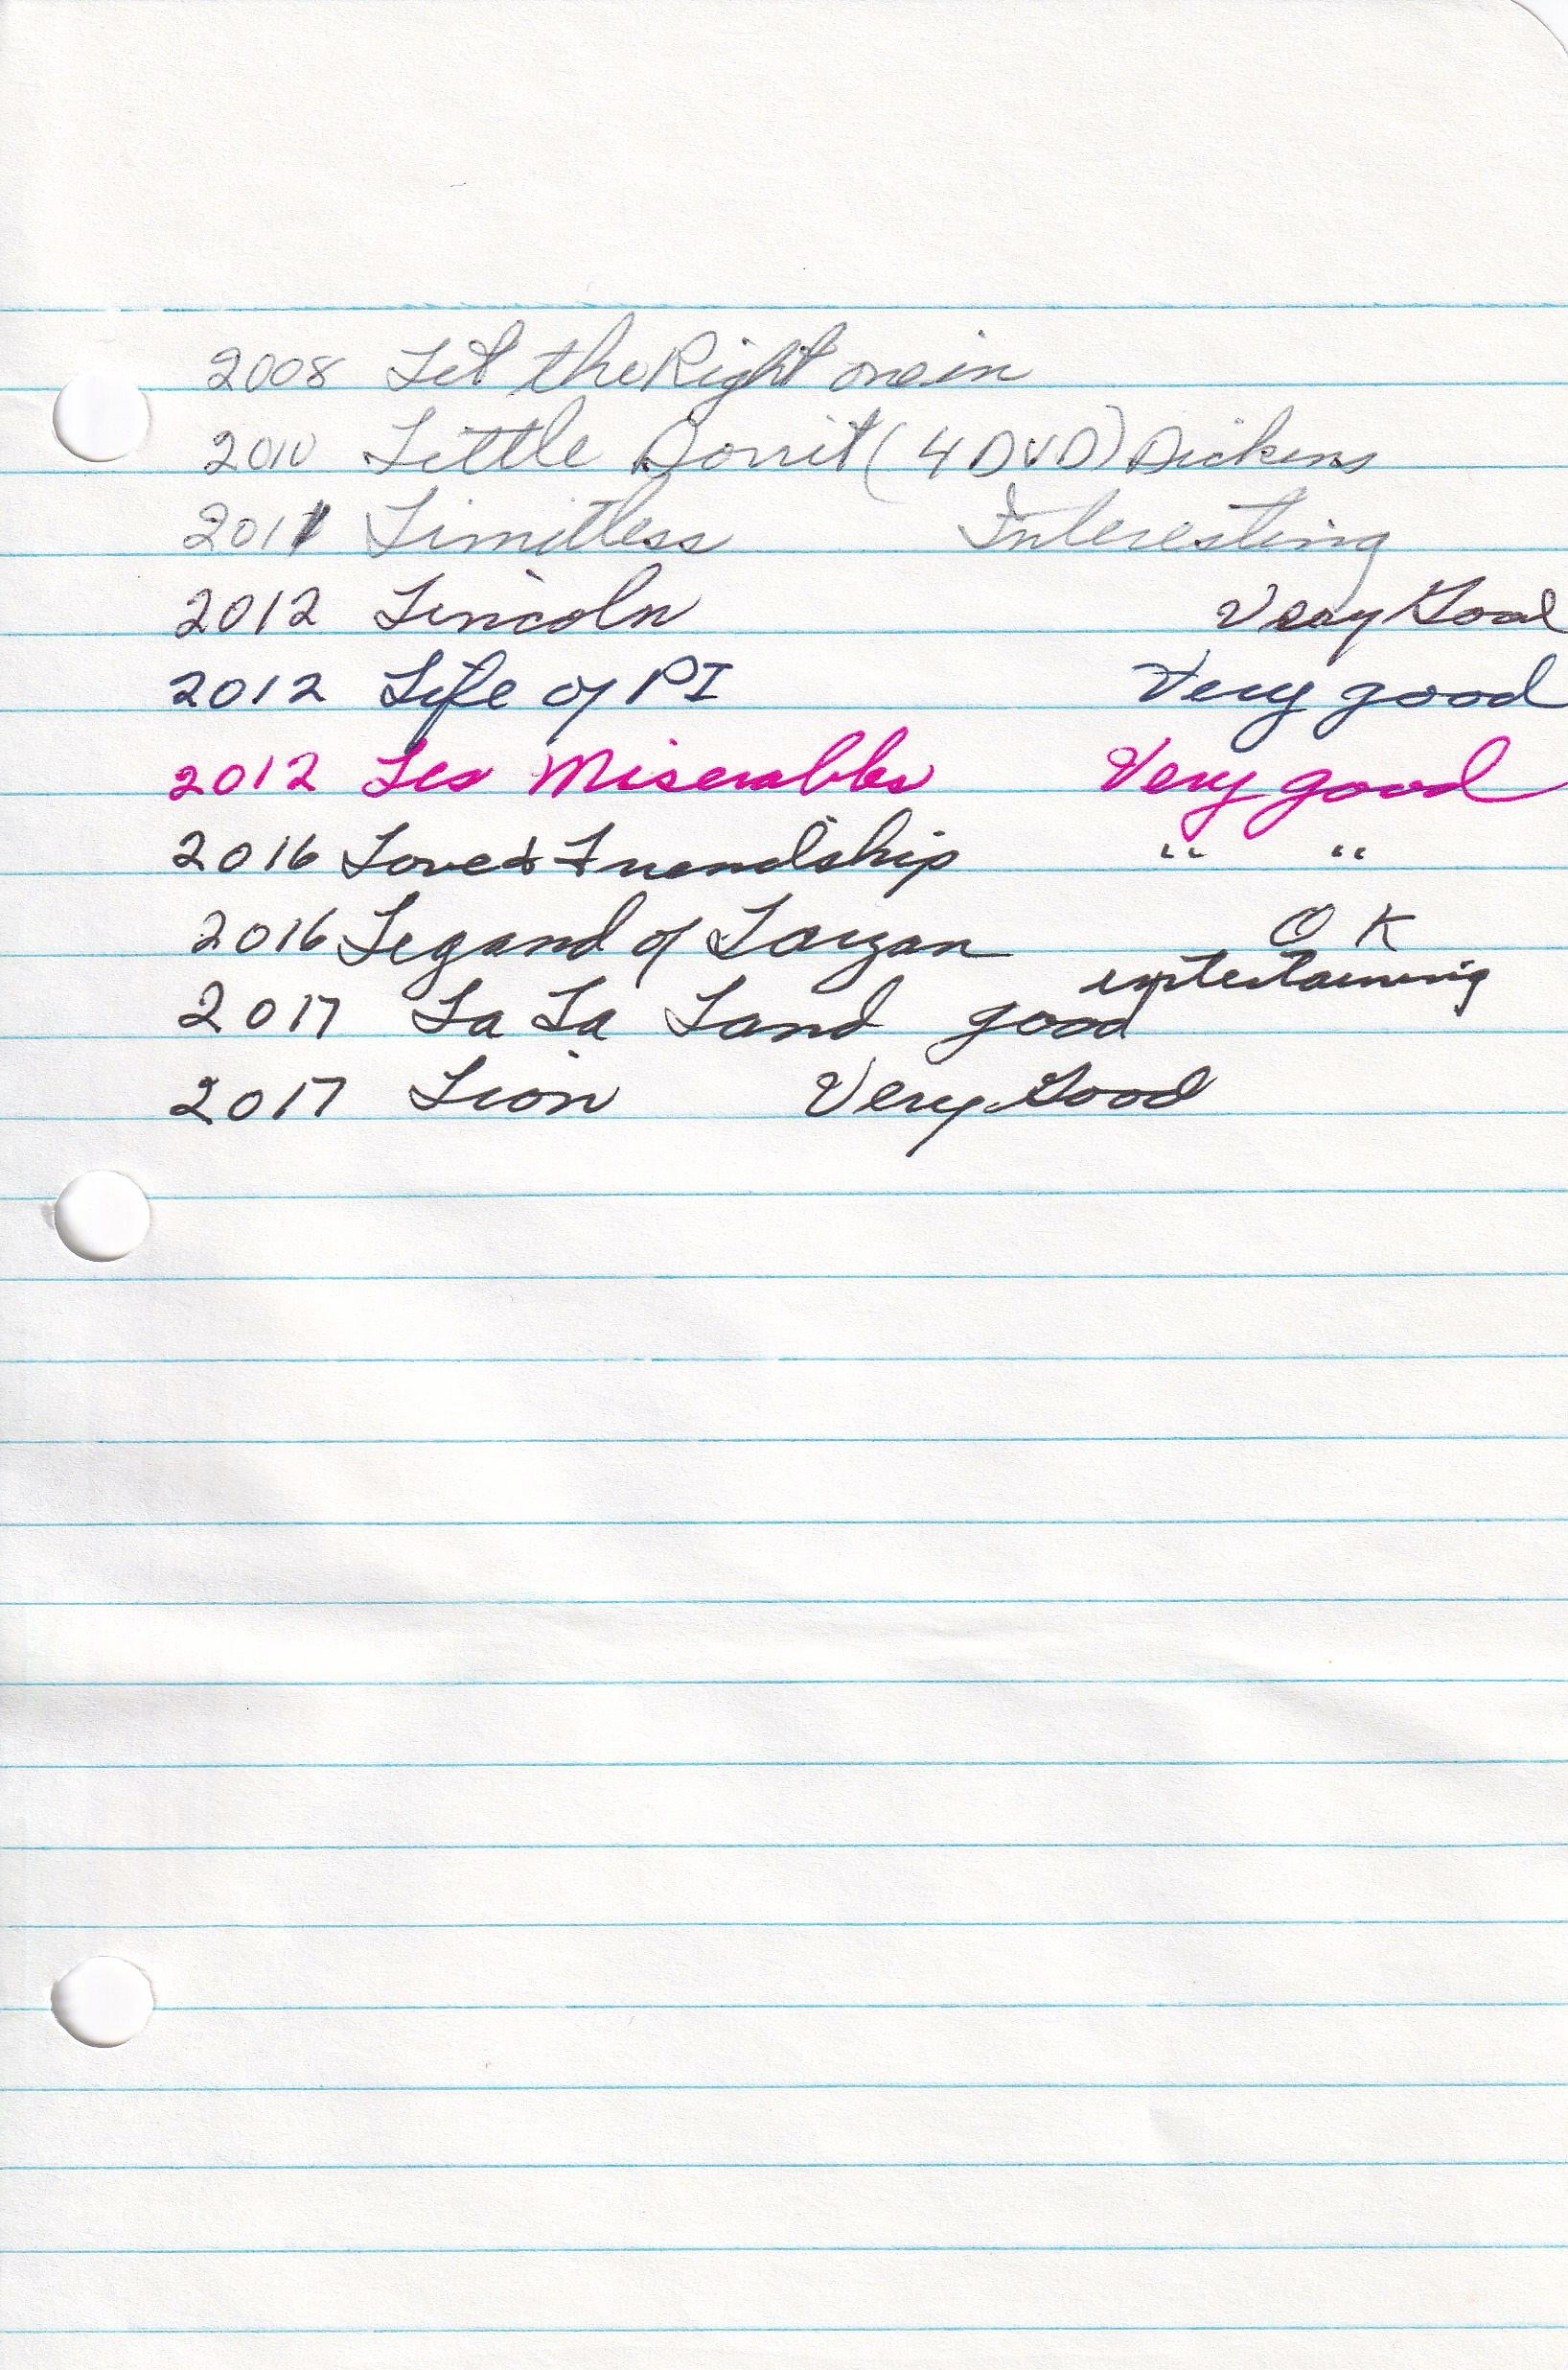 2008 Let the Right one in
2010 Little Dorrit (4 DVD) Dickens
2011 Limitless Interesting
2012 Lincoln Very Good
2012 Life of PI Very good
2012 Les Miserables Very good
2016 Love & Friendship " "
2016 Legand of Tarzan OK
entertaining
2017 La La Land good
2017 Lion Very Good